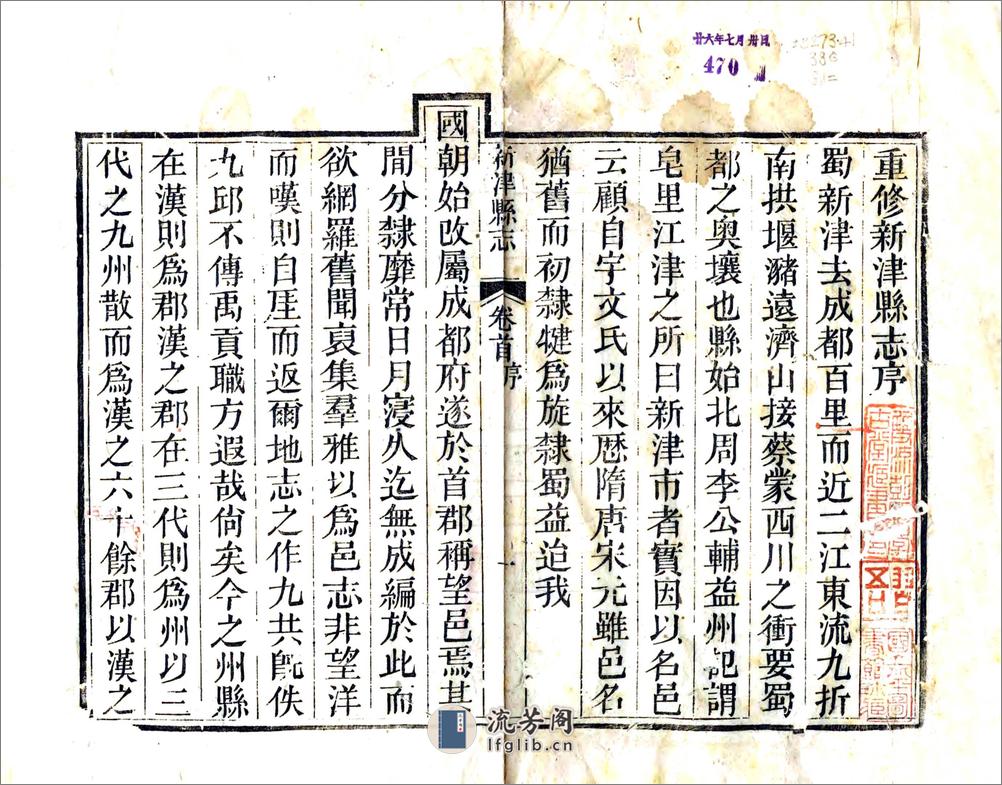 重修新津縣志序
蜀新津去成都百里而近二江東流九折
南拱堰瀦遠濟山接蔡蒙西川之衝要蜀
都之奧壤也縣始北周李公輔益州記謂
皂里江津之所曰新津市者實因以名邑
云顧自宇文氏以來歷隋唐宋元雖邑名
猶舊而初隸犍爲旋隸蜀益迨我
新津縣志
卷首
序
一
國朝始改屬成都府遂於首郡稱望邑焉其
間分隸靡常日月寖久迄無成編於此而
欲網羅舊聞裒集羣雅以爲邑志非望洋
而嘆則自厓而返爾地志之作九共旣佚
九邱不傳禹貢職方遐哉尙矣今之州縣
在漢則爲郡漢之郡在三代則爲州以三
代之九州散而爲漢之六十餘郡以漢之
廿六年七月卅日
470
流芳阁
lfglib.cn